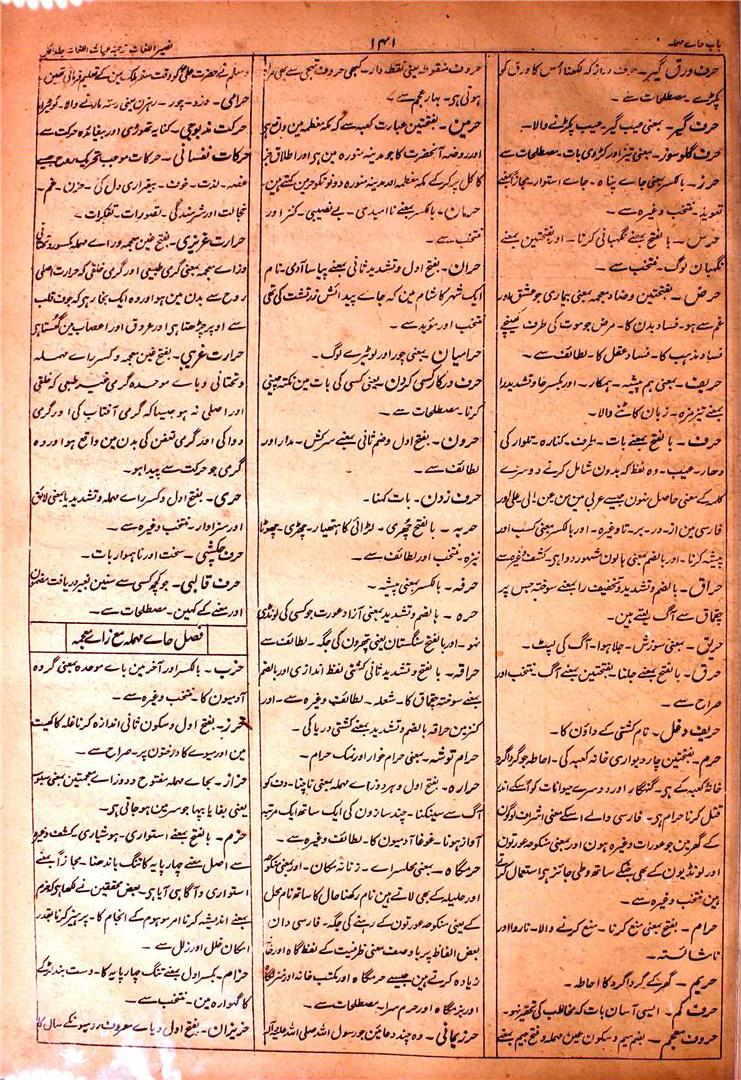 باب حاے مہملہ
۱۴۱
نصیر اللغات ترجمۂ غیاث اللغات جلد اول
حرف ورق گیر۔ حرف دراز کہ لکھنا اُس کا ورق کو
پکڑے۔ مصطلحات سے۔
حرف گیر۔ بمعنی عیب گیر۔ عیب پکڑنے والا۔
حرف گلوسوز۔ بمعنی تیز اور کڑوی بات۔ مصطلحات سے
حرز۔ بالکسر بمعنی جاے پناہ۔ جاے استوار۔ مجازاً بمعنے
تعویذ۔ منتخب وغیرہ سے۔
حرس۔ بالفتح بمعنے نگہبانی کرنا۔ اور بفتحتین بمعنے
نگہبان لوگ۔ منتخب سے۔
حرض۔ بفتحتین وضاد معجمہ بمعنی بیماری جو عشق اور
غم سے ہو۔ فساد بدن کا۔ مرض جو موت کی طرف کھینچے
فساد مذہب کا۔ فساد عقل کا۔ لطائف سے۔
حریف۔ بمعنی ہم پیشہ۔ ہمکار۔ اور بکسر حا و تشدید را
بمعنے تیز مزہ۔ زبان کا کاٹنے والا۔
حرف۔ بالفتح بمعنے بات۔ طرف۔ کنارہ۔ تلوار کی
دھار۔ عیب۔ وہ لفظ کہ بدون شامل کرنے دوسرے
کلمہ کے معنی حاصل نہون جیسے عربی مین من عن الی علی اور
فارسی مین از۔ در۔ بر۔ تا وغیرہ۔ اور بالکسر بمعنی کسب اور
پیشہ کرنا۔ اور بالضم بمعنی ہالون مشہور دوا ہی۔ کشف وغیرہ سے
حراق۔ بالضم و تشدید و تخفیف را بمعنے سوختہ جس پر
چقماق سے آگ لیتے ہین۔
حریق۔ بمعنی سوزش۔ جلا ہوا۔ آگ کی لپٹ۔
حرق۔ بالفتح بمعنے جلنا۔ بفتحتین بمعنے آگ۔ منتخب اور
صراح سے۔
حریف دغل۔ نام کشتی کے داؤن کا۔
حرم۔ بفتحتین چار دیواری خانہ کعبہ کی۔ احاطہ جو گرداگرد
خانۂ کعبہ کے ہی۔ گنہگار اور دوسرے حیوانات کو اسکے اندر
قتل کرنا حرام ہی۔ فارسی والے اسکے معنی اشراف لوگون
کے گھر مین جو عورات وغیرہ ہون اور بمعنی منکوحہ عورتون
اور لونڈیون کے بھی جنکے ساتھ وطی جائز ہی استعمال کرتے
ہین منتخب وغیرہ سے۔
حرام۔ بفتح بمعنی منع کرنا۔ منع کرنے والا۔ ناروا اور
ناشائستہ۔
حریم۔ گھر کے گرداگرد کا احاطہ۔
حرف کم۔ ایسی آسان بات کہ مخاطب کی تحقیر نہو۔
حروف معجم۔ بضم میم و سکون عین مہملہ و فتح جیم بمعنے
حروف منقوطہ یعنی نقطہ دار۔ کبھی حروف تہجی سے بھی مراد
ہوتی ہی۔ بہار عجم سے
حرمین۔ بفتحتین عبارت کعبہ سے کہ مکہ معظمہ مین واقع ہی
اور روضہ آنحضرت کا جو مدینہ منورہ مین ہی اور اطلاق جز
کا کل پر کر کے مکہ معظمہ اور مدینہ منورہ دونو کو حرمین کہتے ہین
حرمان۔ بالکسر بمعنے ناامیدی۔ بے نصیبی۔ کنز اور
منتخب سے۔
حران۔ بفتح اول و تشدید ثانی بمعنے پیاسا آدمی۔ نام
ایک شہر کا شام مین کہ جاے پیدائش زرتشت کی تھی
منتخب اور مؤید سے۔
حرامیان۔ یعنی چور اور لوٹیرے لوگ۔
حرف درکار کسی کردن۔ یعنی کسی کی بات مین نکتہ چینی
کرنا۔ مصطلحات سے۔
حرون۔ بفتح اول و ضم ثانی بمعنے سرکش۔ مدار اور
لطائف سے۔
حرف زدن۔ بات کہنا۔
حربہ۔ بالفتح چھُری۔ لڑائی کا ہتھیار۔ چھڑی۔ چھوٹا
نیزہ۔ منتخب اور لطائف سے۔
حرفہ۔ بالکسر بمعنی پیشہ۔
حرہ۔ بالضم و تشدید بمعنی آزاد عورت جو کسی کی لونڈی
نہو۔ اور بالفتح سنگستان یعنی پتھرون کی جگہ۔ لطائف سے
حراقہ۔ بالفتح و تشدید ثانی کشتی نفط اندازی اور بالضم
بمعنے سوختہ چقماق کا۔ شعلہ۔ لطائف وغیرہ سے۔ اور
کنز مین حراقہ بالضم و تشدید بمعنے کشتی دریا کی۔
حرام توشہ۔ بمعنی حرام خوار اور نمک حرام۔
حرارہ۔ بفتح اول و ہر دو راے مہملہ بمعنی تاپنا۔ دف کو
آگ سے سینکنا۔ چند سازون کی ایک ساتھ ایک مرتبہ
آواز ہونا۔ غوغا آدمیون کا۔ لطائف وغیرہ سے۔
حرمگاہ۔ بمعنی محلسراے۔ زنانہ مکان۔ اور بمعنی منکوحہ
اور حلیلہ کے بھی لاتے ہین نام رکھنا حال کا ساتھ نام محل
کے یعنی منکوحہ عورتون کے رہنے کی جگہ۔ فارسی دان
بعض الفاظ پر باوصف معنی ظرفیت کے لفظ گاہ اور خانہ
زیادہ کرتے ہین جیسے حرمگاہ اور مکتب خانہ اور منزلگاہ
اور بزمگاہ اور حرم سرا۔ مصطلحات سے۔
حرز یمانی۔ وہ چند دعائین جو رسول اللہ صلی اللہ علیہ وآلہ
وسلم نے حضرت علیؓ کو وقت سفر ملک یمن کے تعلیم فرمائی تھین۔
حرامی۔ دزد۔ چور۔ رہزن یعنی رستہ مارنے والا۔ لوٹیرا
حرکت مذبوحی۔ کنایہ تھوڑی اور بیفائدہ حرکت سے
حرکات نفسانی۔ حرکات موجب تحریک روح جیسے
غصہ۔ لذت۔ خوف۔ بیقراری دل کی۔ حزن۔ غم۔
خجالت اور شرمندگی۔ تصورات۔ تفکرات۔
حرارت غریزی۔ بفتح غین معجمہ و راے مہملہ مکسور و تحتانی
و زاے معجمہ بمعنی گرمی طبیعی اور گرمی خلقی کہ حرارت اصلی
روح سے بدن مین ہو اور وہ ایک بخار ہی کہ جوف قلب
سے اوپر چڑھتا ہی اور عروق اور اعصاب مین گھستا ہی
حرارت غریبی۔ بفتح غین معجمہ و کسر راے مہملہ
و تحتانی و باے موحدہ گرمی غیر طبعی کہ خلقی
اور اصلی نہ ہو جیسا کہ گرمی آفتاب کی اور گرمی
دوا کی اور گرمی تعفن کی بدن مین واقع ہو اور وہ
گرمی جو حرکت سے پیدا ہو۔
حری۔ بفتح اول و کسر راے مہملہ و تشدید یا بمعنی لائق
اور سزاوار۔ منتخب وغیرہ سے۔
حرف چکشی۔ سخت اور ناہموار بات۔
حرف قالبی۔ جو کچھ کسی سے سنین بغیر دریافت مضمون
اور سننے کے کہین۔ مصطلحات سے۔
فصل حاے مہملہ مع زاے معجمہ
حزب۔ بالکسر اور آخر مین باے موحدہ بمعنی گروہ
آدمیون کا۔ منتخب وغیرہ سے۔
حرز۔ بفتح اول و سکون ثانی اندازہ کرنا غلہ کا کھیت
مین اور میوے کا درختون پر۔ صراح سے۔
حزاز۔ بحاے مہملہ مفتوح و دو زاے معجمتین بمعنی سبوسہ
یعنی بفا یا بہا جو سر مین ہو جاتی ہی۔
حزم۔ بالفتح بمعنے استواری۔ ہوشیاری۔ کشف وغیرہ
سے اصل معنے چارپایہ کا تنگ باندھنا۔ مجازاً بمعنے
استواری و آگاہی آیا ہی۔ بعض محققین نے لکھا ہی کہ حزم
بمعنے اندیشہ کرنا امر موہوم کے انجام کا۔ پرہیز کرنا بقدر
امکان خلل اور زلل سے۔
حزام۔ بکسر اول بمعنے تنگ چارپایہ کا۔ دست بند لڑکے
کا گہوارہ مین۔ منتخب سے۔
حزیران۔ بفتح اول و یاے معروف رومیون کے سال کا